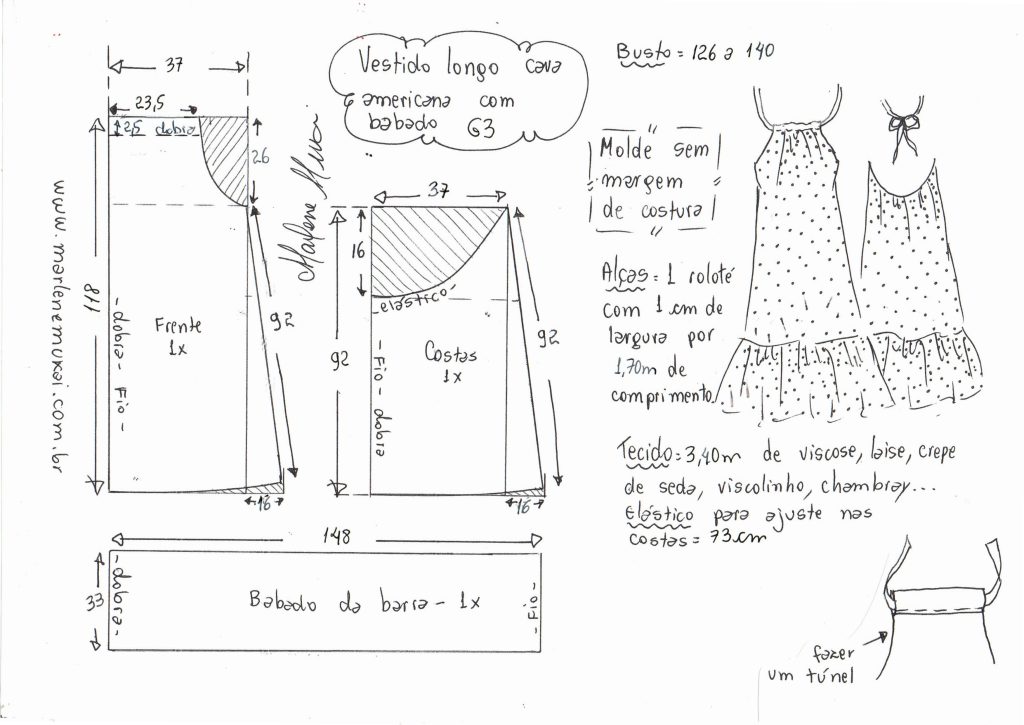 Vestido longo cava
americana com
babado G3
Busto = 126 a 140
Molde sem
margem
de costura
Alças = 1 roloté
com 1 cm de
largura por
1,70m de
comprimento
Tecido = 3,40m de viscose, laise, crepe
de seda, viscolinho, chambray...
Elástico para ajuste nas
costas = 73 cm
fazer
um túnel
www.marlenemukai.com.br
37
23,5
2,5 dobra
26
118
92
- dobra - Fio -
Frente
1x
16
37
16
- elástico -
92
92
- Fio - dobra
Costas
1x
16
148
33
- dobra -
Babado da barra - 1x
- Fio -